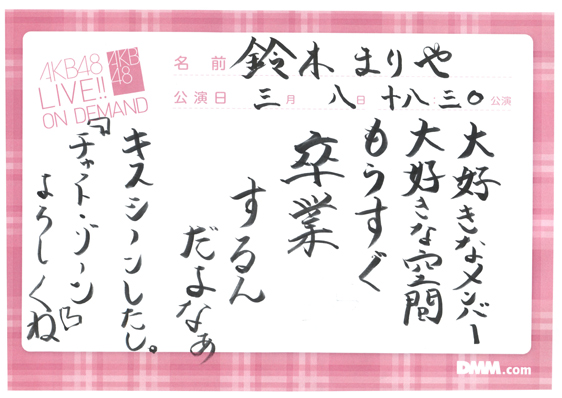 AKB48
LIVE!!
ON DEMAND
AKB
48
名前 鈴木まりや
公演日 三月 八日 十八:三〇 公演
大好きなメンバー
大好きな空間
もうすぐ
卒業
するん
だよなぁ
キスシーンしたし。
『チャート・ゾーン』
よろしくね
DMM.com